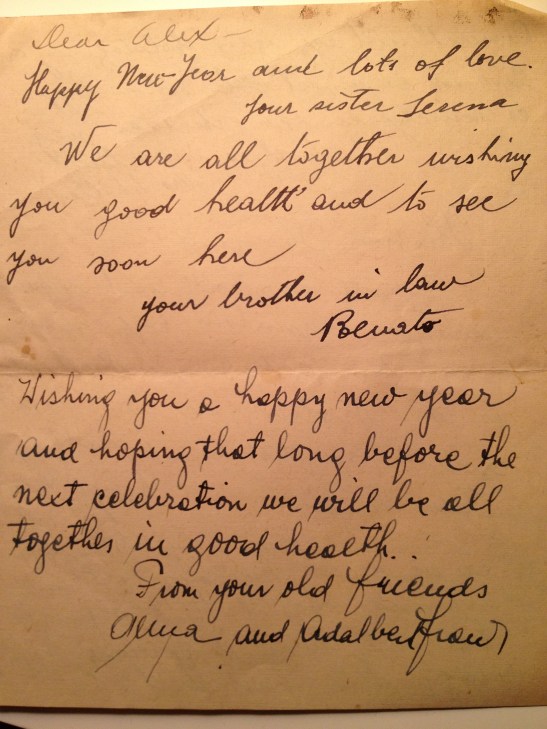 Dear Alex -
Happy New Year and lots of love.
Your sister Serena
We are all together wishing
you good health and to see
you soon here
your brother in law
Renato
Wishing you a happy new year
and hoping that long before the
next celebration we will be all
together in good health..
From your old friends
and Adalbert